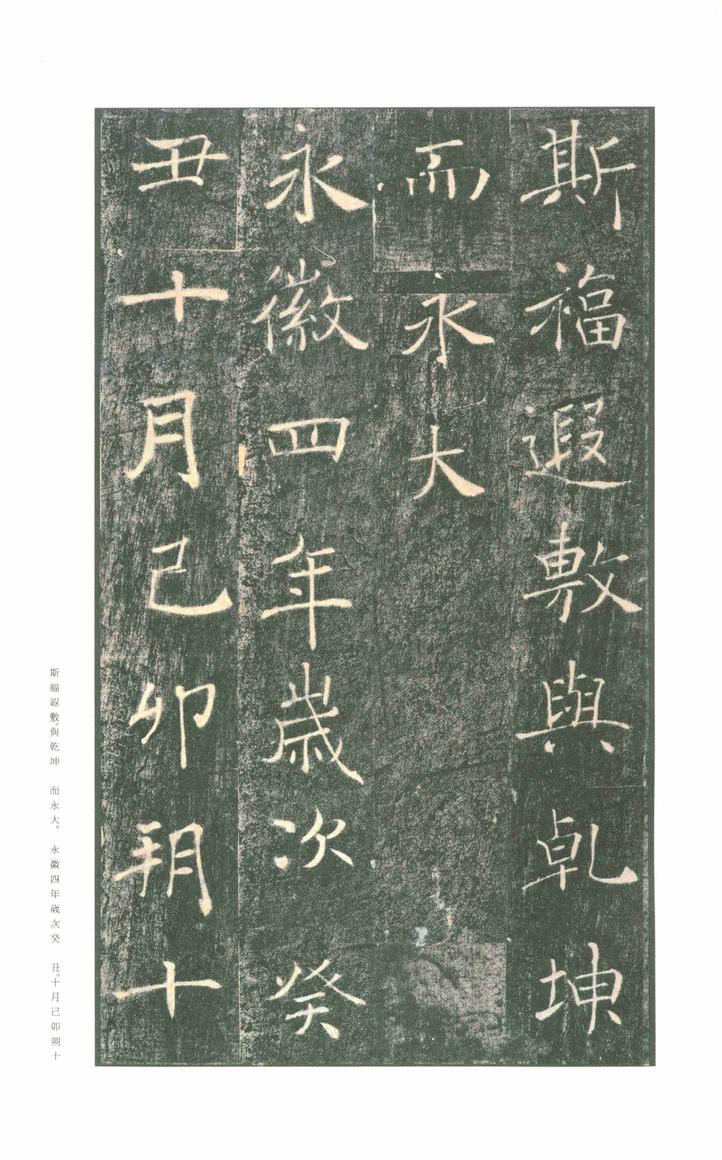 斯福遐敷與乹坤
而永大
永徽四年歳次癸
丑十月己卯朔十
斯福遐敷。與乾坤　而永大。　永徽四年歲次癸　丑。十月己卯朔十